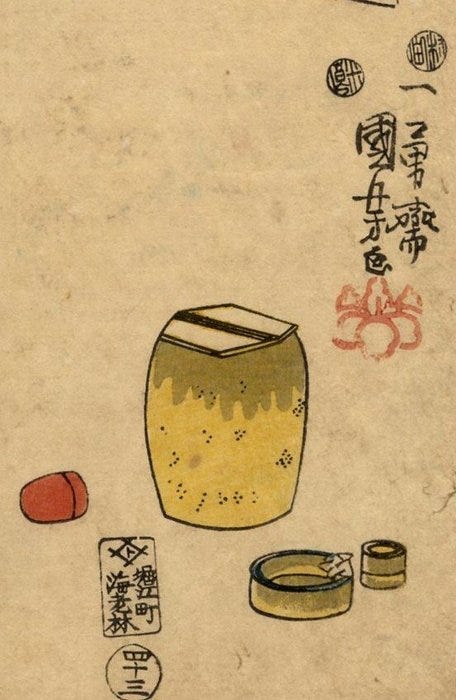 一勇齋
國芳画
堀江町
海老林
四十三